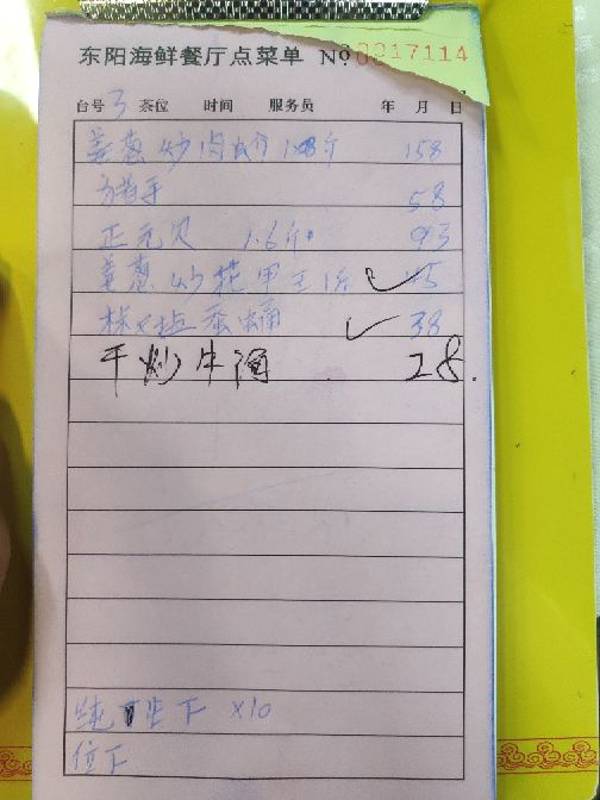 东阳海鲜餐厅点菜单 No. 0217114
台号 3 茶位 时间 服务员 年 月 日
姜葱炒肉蚧 1.8斤 158
58
正元贝 1.6斤 93
姜葱炒花甲王 1斤 45
椒盐 38
干炒牛河 28.
纯 下 ×10
位下